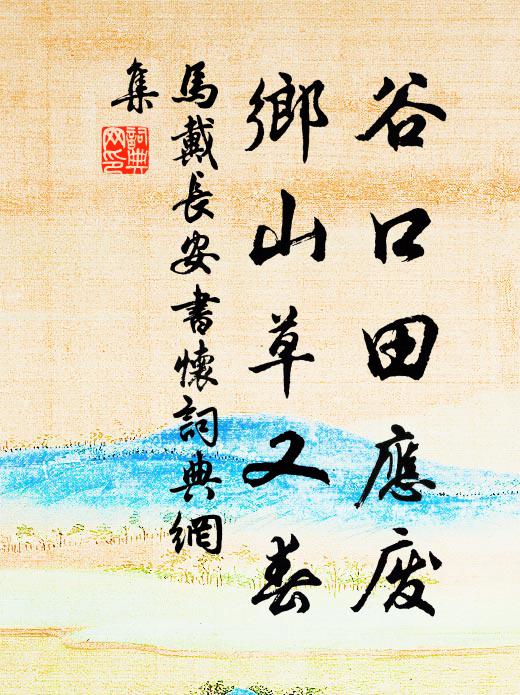 谷口田應废
鄉山草又春
馬戴長安書懷詞典網
集
詞典
网印